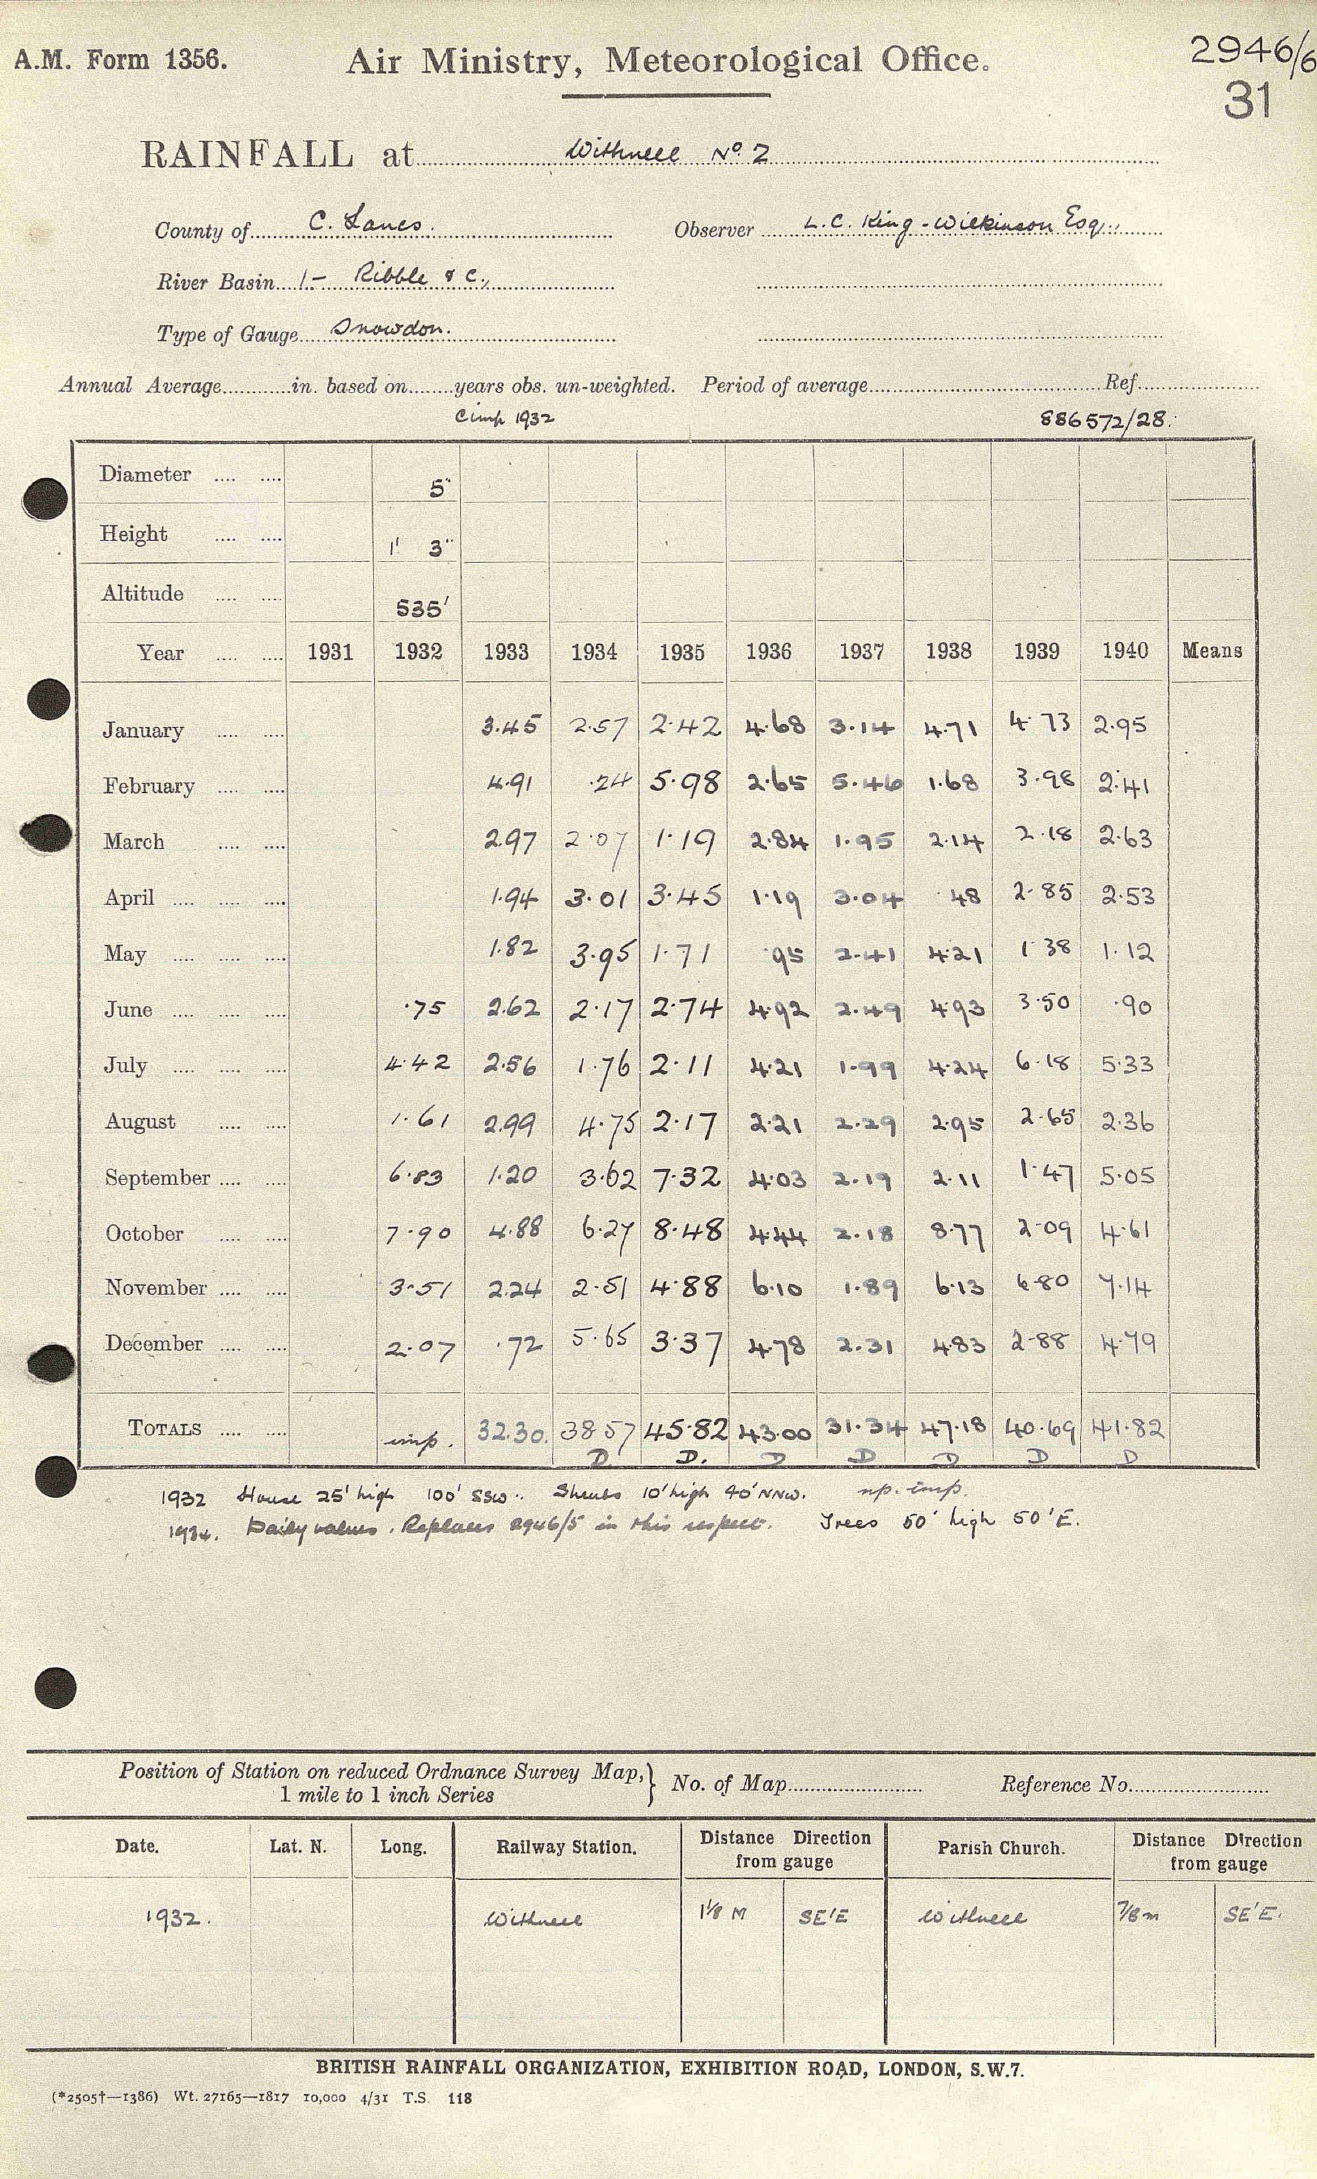 A.M. Form 1356.
Air Ministry, Meteorological Office.
2946/6
31
RAINFALL at Withnell No. 2
County of C. Lancs.
Observer L.C. King-Wilkinson Esq.,
River Basin 1— Ribble &c.,
Type of Gauge Snowdon.
Annual Average in. based on years obs. un-weighted. Period of average Ref.
Cimp 1932 886572/28.
Diameter 5"
Height 1' 3"
Altitude 535'
Year 1931 1932 1933 1934 1935 1936 1937 1938 1939 1940 Means
January 3.45 2.57 2.42 4.68 3.14 4.71 4.73 2.95
February 4.91 .24 5.98 2.65 5.46 1.68 3.98 2.41
March 2.97 2.07 1.19 2.84 1.95 2.14 2.18 2.63
April 1.94 3.01 3.45 1.19 3.04 .48 2.85 2.53
May 1.82 3.95 1.71 .95 2.41 4.21 1.38 1.12
June .75 2.62 2.17 2.74 4.92 2.49 4.93 3.50 .90
July 4.42 2.56 1.76 2.11 4.21 1.99 4.24 6.18 5.33
August 1.61 2.99 4.75 2.17 2.21 2.29 2.95 2.65 2.36
September 6.83 1.20 3.62 7.32 4.03 2.19 2.11 1.47 5.05
October 7.90 4.88 6.27 8.48 4.44 2.18 8.77 2.09 4.61
November 3.51 2.24 2.51 4.88 6.10 1.89 6.13 6.80 7.14
December 2.07 .72 5.65 3.37 4.78 2.31 4.83 2.88 4.79
TOTALS imp. 32.30. 38.57 45.82 43.00 31.34 47.18 40.69 41.82
D. D. D D D D D
1932 House 25' high 100' SSW.. Shrubs 10' high 40' NNW. np. imp.
1934. Daily values. Replaces 2946/5 in this respect. Trees 50' high 50' E.
Position of Station on reduced Ordnance Survey Map,
1 mile to 1 inch Series
No. of Map Reference No.
Date. Lat. N. Long. Railway Station. Distance Direction from gauge Parish Church. Distance Direction from gauge
1932. Withnell 1⅛ M SE'E Withnell ⅞ m SE'E.
BRITISH RAINFALL ORGANIZATION, EXHIBITION ROAD, LONDON, S.W.7.
(*2505†—1386) Wt. 27165—1817 10,000 4/31 T.S. 118